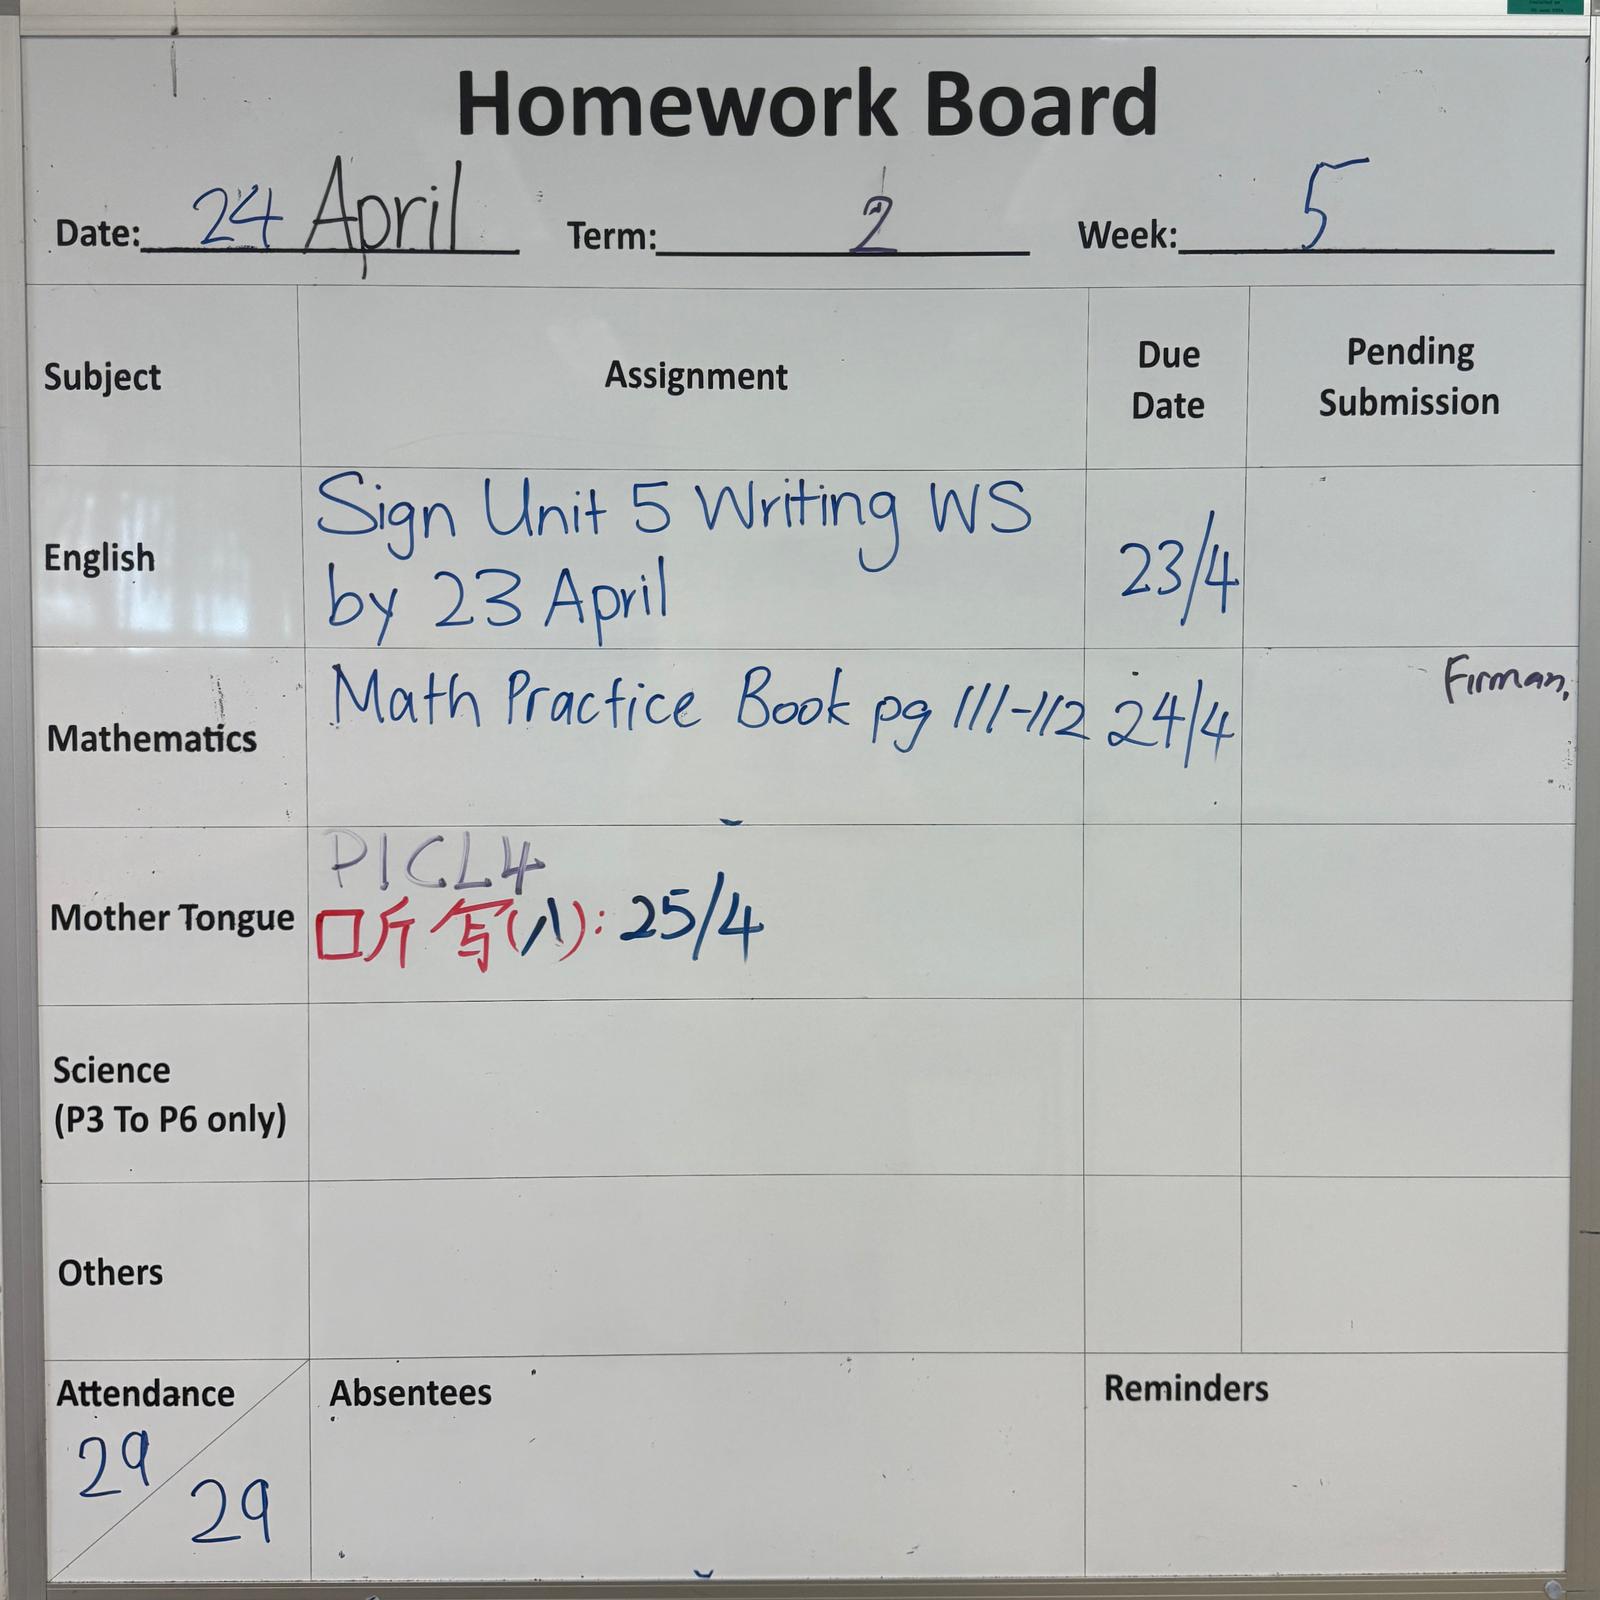 Homework Board
Date: 24 April Term: 2 Week: 5
Subject Assignment Due Date Pending Submission
English Sign Unit 5 Writing WS 23/4
by 23 April
Mathematics Math Practice Book pg 111-112 24/4 Firman,
Mother Tongue P1CL4
听写(八): 25/4
Science
(P3 To P6 only)
Others
Attendance Absentees Reminders
29
29